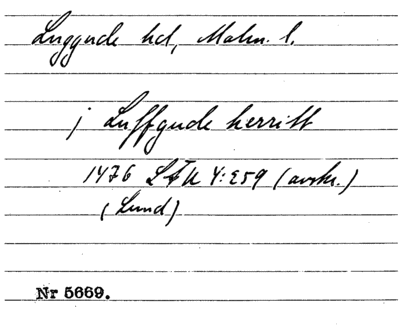 Luggude hd, Malm. l.
j Luffgude herritt
1476 LÄU 4:259 (avskr.)
(Lund)
Nr 5669.